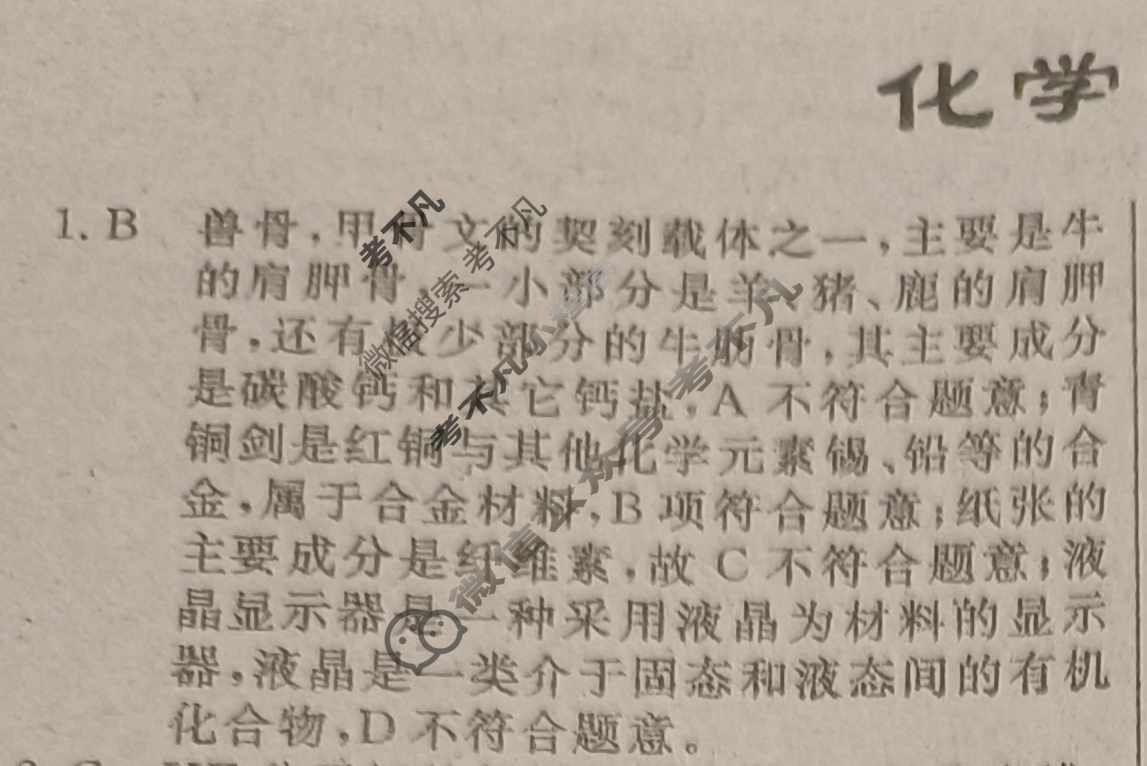 化学
1. B 兽骨,甲骨文的契刻载体之一,主要是牛
的肩胛骨,一小部分是羊、猪、鹿的肩胛
骨,还有极少部分的牛肋骨,其主要成分
是碳酸钙和其它钙盐,A 不符合题意;青
铜剑是红铜与其他化学元素锡、铅等的合
金,属于合金材料,B 项符合题意;纸张的
主要成分是纤维素,故 C 不符合题意;液
晶显示器是一种采用液晶为材料的显示
器,液晶是一类介于固态和液态间的有机
化合物,D 不符合题意。
考不凡
微信搜索 考不凡
考不凡小程序
微信公众号 考不凡